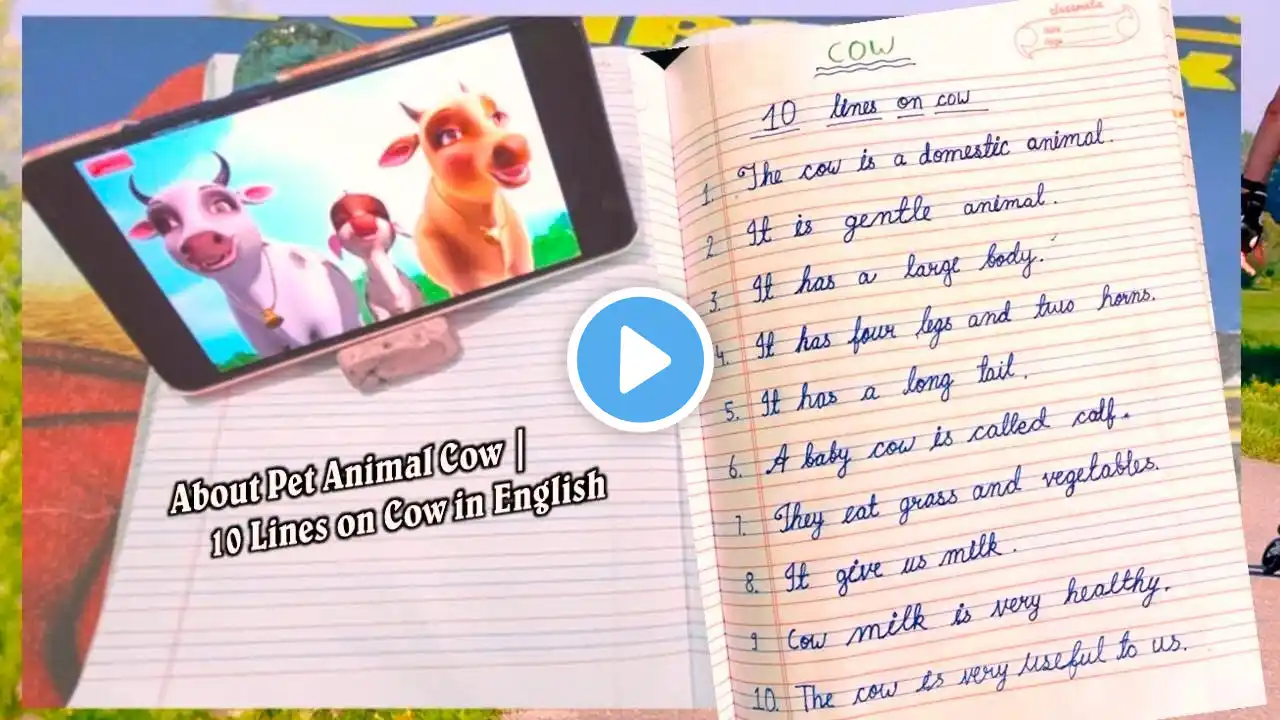 About Pet Animal Cow |
10 Lines on Cow in English
classmate
COW
10 lines on cow
1. The cow is a domestic animal.
2 It is gentle animal.
3. It has a large body.
4. It has four legs and two horns.
5. It has a long tail.
6. A baby cow is called calf.
7. They eat grass and vegetables.
8. It give us milk.
9 Cow milk is very healthy.
10. The cow is very useful to us.